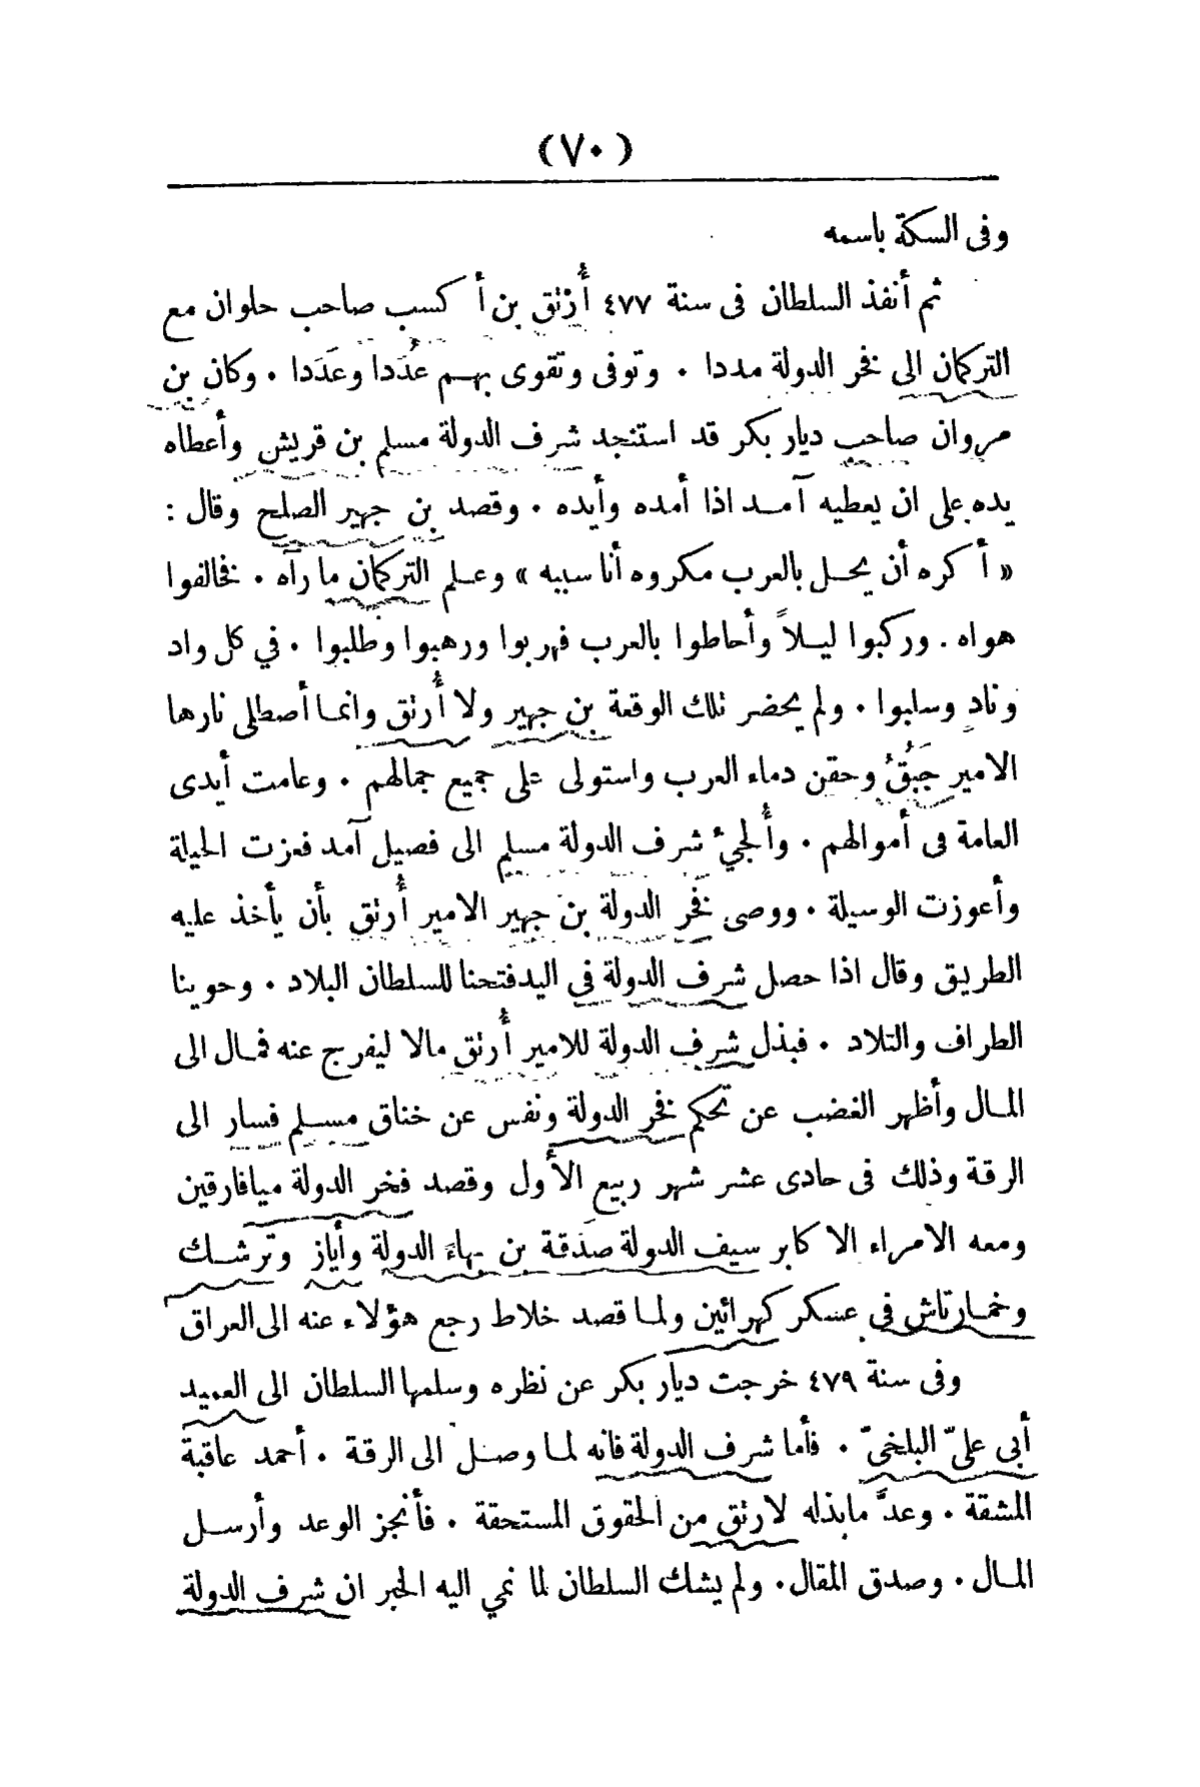 (٧٠)
وفى السكة باسمه
ثم أنفذ السلطان فى سنة ٤٧٧ أُرْتق بن أكسب صاحب حلوان مع
التركمان الى فخر الدولة مددا . وتوفى وتقوى بهم عُدَدا وعَدَدا . وكان بن
مروان صاحب ديار بكر قد استنجد شرف الدولة مسلم بن قريش وأعطاه
يده على ان يعطيه آمد اذا أمده وأيده . وقصد بن جهير الصلح وقال :
« أكره أن يحل بالعرب مكروه أنا سببه » وعلم التركمان ما رآه . فخالفوا
هواه . وركبوا ليلاً وأحاطوا بالعرب فهربوا ورهبوا وطلبوا . في كل واد
وناد وسلبوا . ولم يحضر تلك الوقعة بن جهير ولا أُرتق وانما أصطلى نارها
الامير جَبُقُ وحقن دماء العرب واستولى على جميع جمالهم . وعامت أيدى
العامة فى أموالهم . وأُلجيء شرف الدولة مسلم الى فصيل آمد فعزت الحيلة
وأعوزت الوسيلة . ووصى فَخر الدولة بن جهير الامير أُرتق بأن يأخذ عليه
الطريق وقال اذا حصل شرف الدولة فى اليدفتحنا للسلطان البلاد . وحوينا
الطراف والتلاد . فبذل شرف الدولة للامير أُرتق مالا ليفرج عنه فمال الى
المال وأظهر الغضب عن تحكم فخر الدولة ونفس عن خناق مسلم فسار الى
الرقة وذلك فى حادى عشر شهر ربيع الأول وقصد فخر الدولة ميافارقين
ومعه الامراء الاكابر سيف الدولة صَدَقة بن بهاء الدولة وأياز وتَرشك
وخمارتاش فى عسكر كهرائين ولما قصد خلاط رجع هؤلاء عنه الى العراق
وفى سنة ٤٧٩ خرجت ديار بكر عن نظره وسلمها السلطان الى العميد
أبى علىّ البلخىّ . فأما شرف الدولة فانه لما وصل الى الرقة . أحمد عاقبة
المشقة . وعدَّ مابذله لارتق من الحقوق المستحقة . فأنجز الوعد وأرسل
المال . وصدق المقال . ولم يشك السلطان لما نمي اليه الخبر ان شرف الدولة